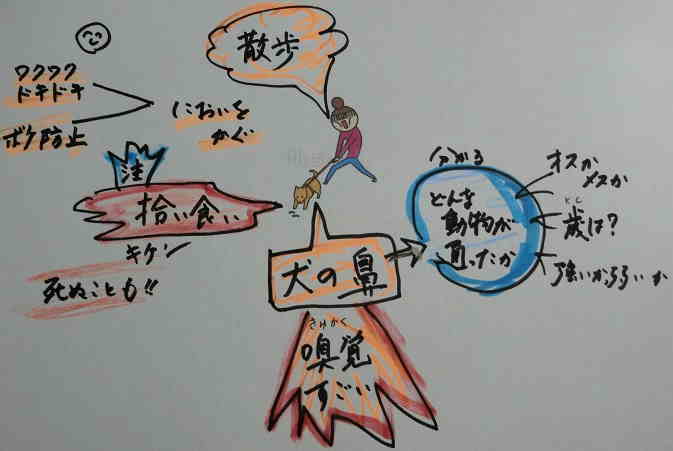 散歩
ワクワク
ドキドキ
ボケ防止
においを
かぐ
注
拾い食い
キケン
死ぬことも!!
犬の鼻
きゅうかく
嗅覚
すごい
分かる
どんな
動物が
通ったか
オスか
メスか
とし
歳は?
強いか弱いか